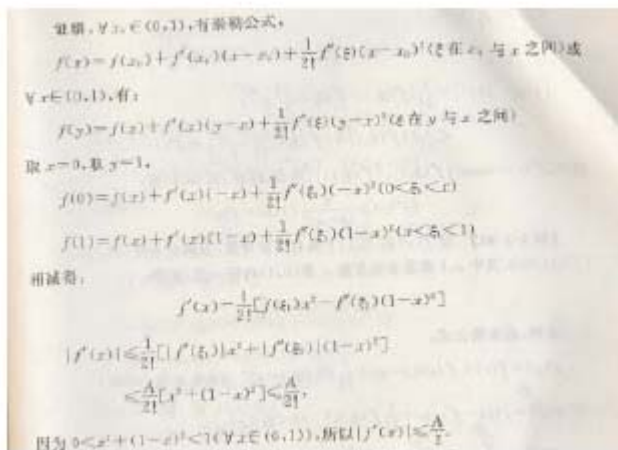 证明,∀x₀∈(0,1),有泰勒公式,
f(x)=f(x₀)+f′(x₀)(x-x₀)+1/2! f″(ξ)(x-x₀)²(ξ在x₀与x之间)或
∀x∈(0,1),有:
f(y)=f(x)+f′(x)(y-x)+1/2! f″(ξ)(y-x)²(ξ在y与x之间)
取 x=0,取 y=1,
f(0)=f(x)+f′(x)(-x)+1/2! f″(ξ₁)(-x)²(0<ξ₁<x)
f(1)=f(x)+f′(x)(1-x)+1/2! f″(ξ₂)(1-x)²(x<ξ₂<1)
相减得:
f′(x)=1/2![f(ξ₁)x²-f″(ξ₂)(1-x)²]
|f′(x)|≤1/2![|f″(ξ₁)|x²+|f″(ξ₂)|(1-x)²]
≤A/2![x²+(1-x)²]≤A/2!,
因为 0<x²+(1-x)²<1(∀x∈(0,1)),所以|f′(x)|≤A/2.